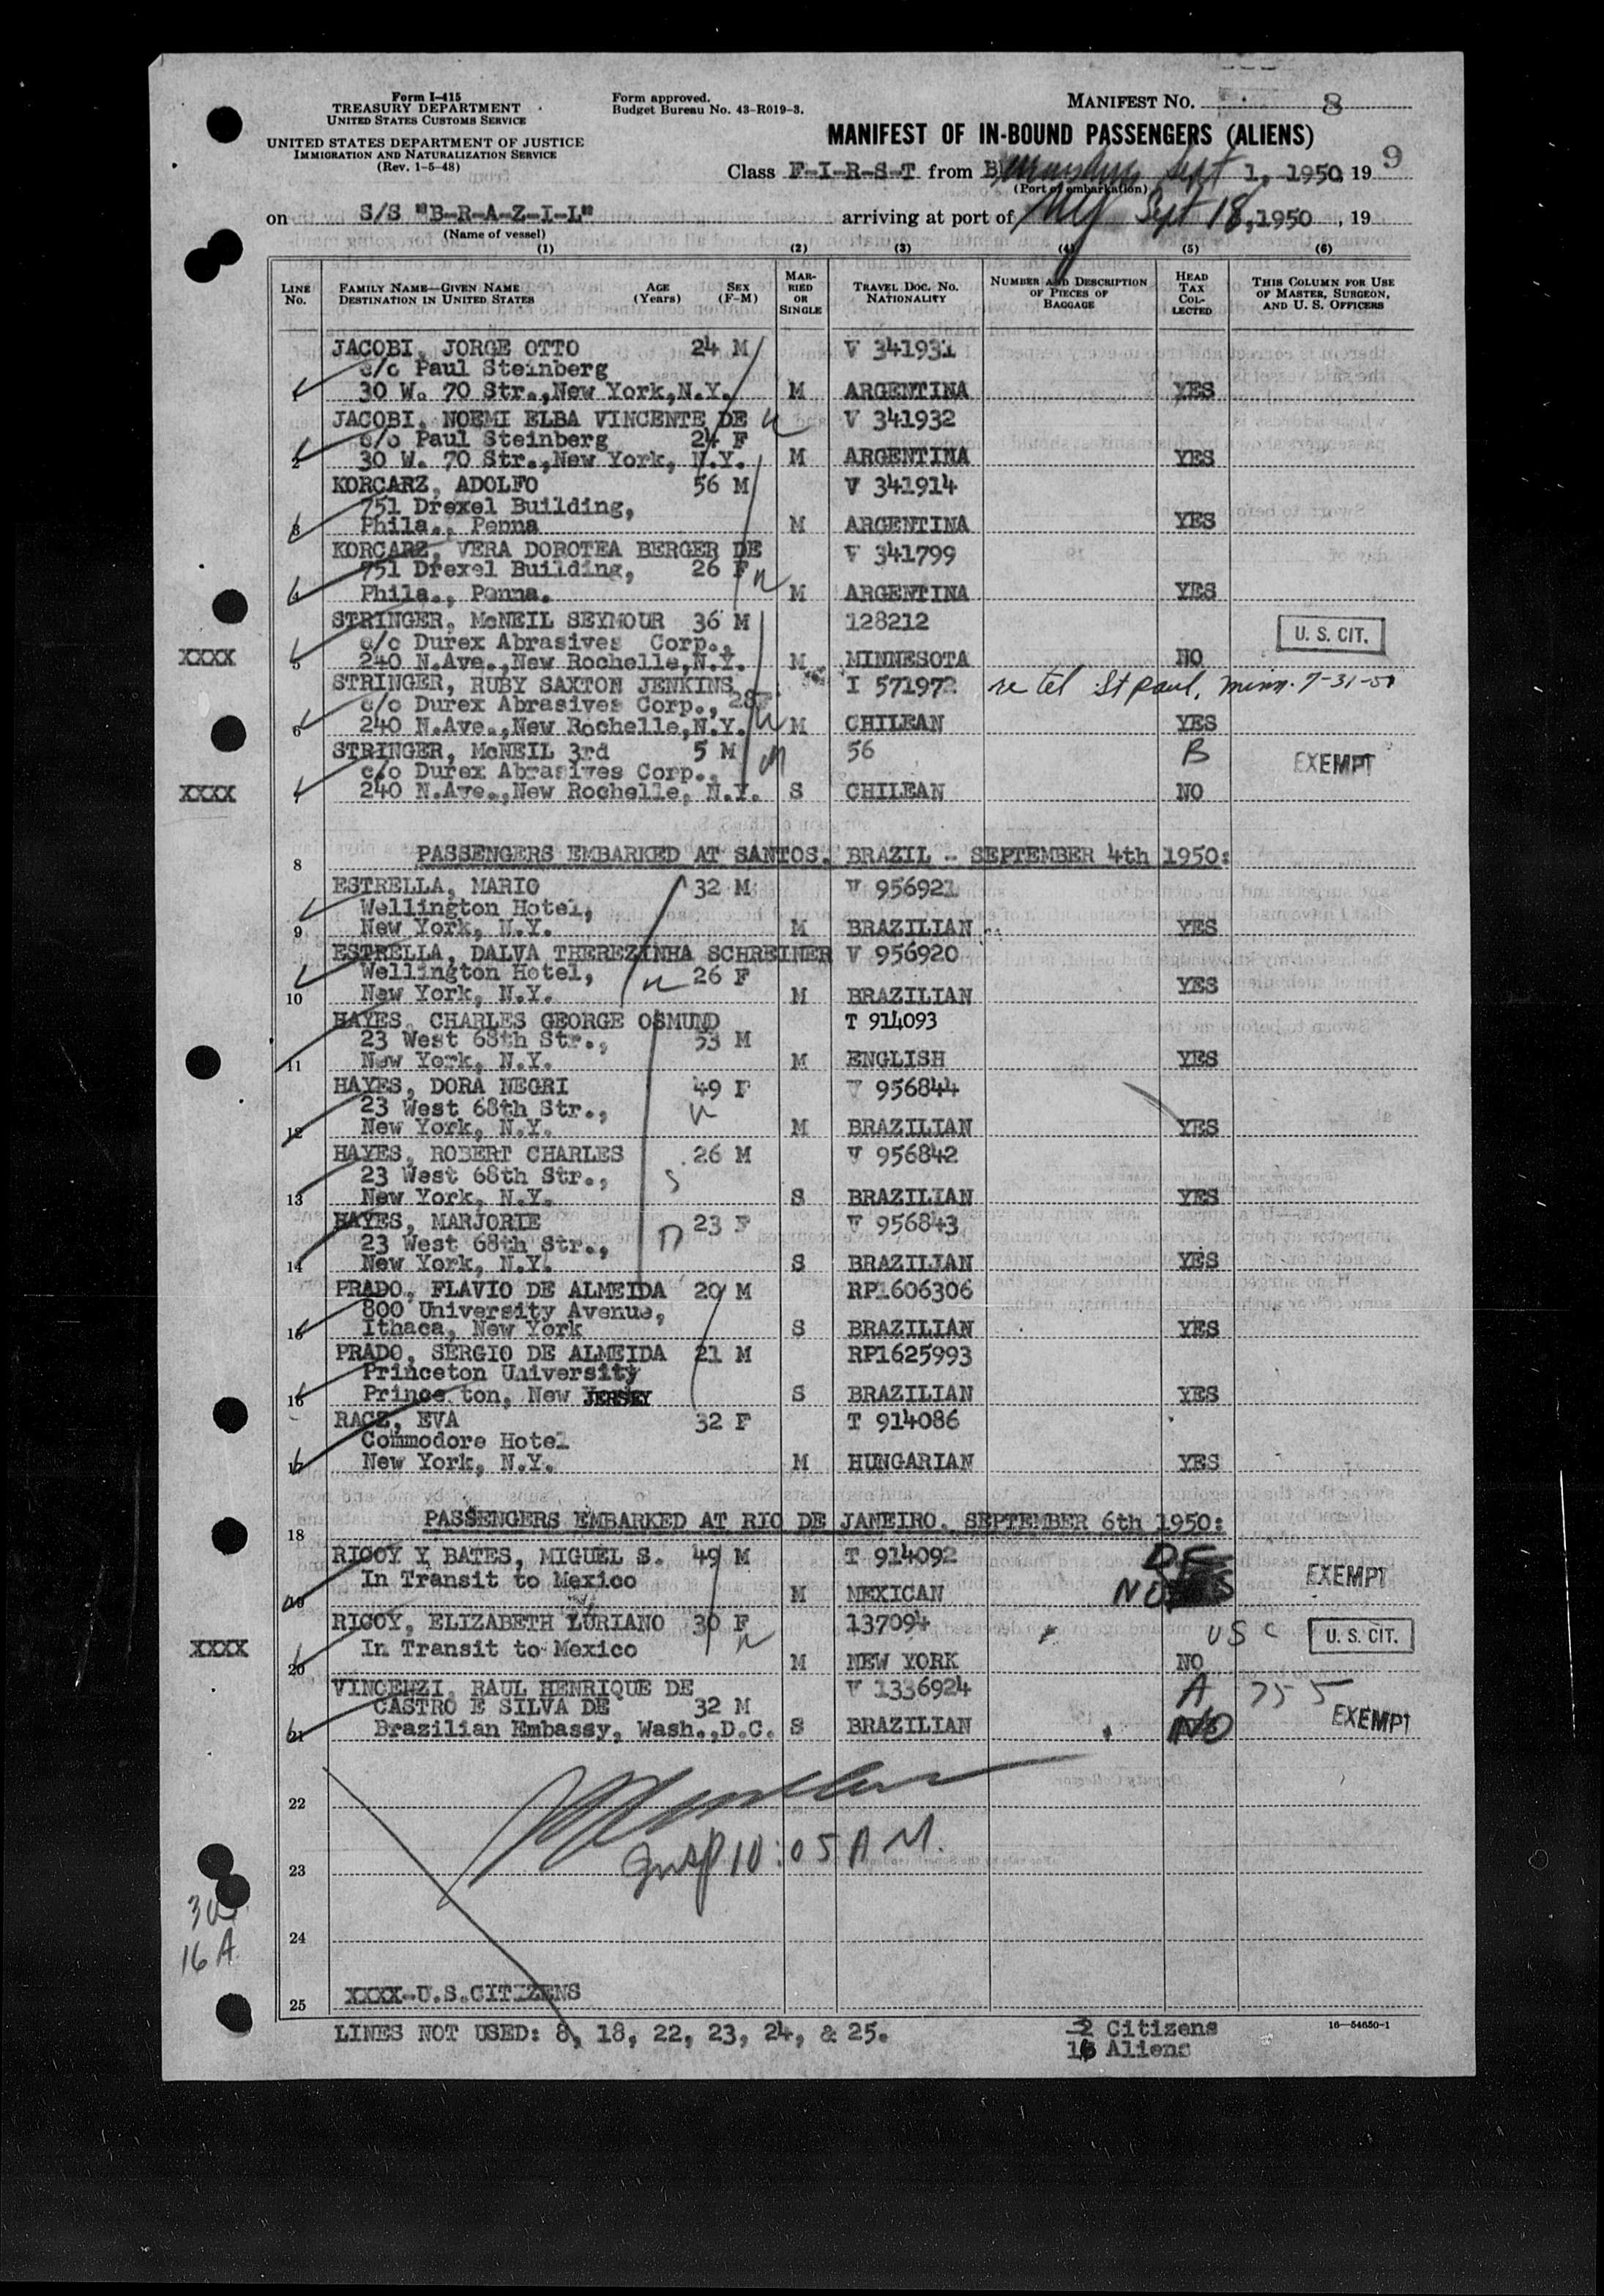 Form I-415
TREASURY DEPARTMENT
UNITED STATES CUSTOMS SERVICE
UNITED STATES DEPARTMENT OF JUSTICE
IMMIGRATION AND NATURALIZATION SERVICE
(Rev. 1-5-48)
Form approved.
Budget Bureau No. 43-R019-3.
MANIFEST NO. 8
MANIFEST OF IN-BOUND PASSENGERS (ALIENS)
9
Class F-I-R-S-T from B Sept 1, 1950, 19
(Port of embarkation)
on S/S "B-R-A-Z-I-L" arriving at port of NY Sept 18, 1950, 19
(Name of vessel)
(1) (2) (3) (4) (5) (6)
LINE No. FAMILY NAME—GIVEN NAME DESTINATION IN UNITED STATES AGE (Years) SEX (F-M) MARRIED OR SINGLE TRAVEL DOC. NO. NATIONALITY NUMBER AND DESCRIPTION OF PIECES OF BAGGAGE HEAD TAX COLLECTED THIS COLUMN FOR USE OF MASTER, SURGEON, AND U. S. OFFICERS
JACOBI, JORGE OTTO 24 M V 341931
c/o Paul Steinberg
1 30 W. 70 Str.,New York,N.Y. M ARGENTINA YES
JACOBI, NOEMI ELBA VINCENTE DE V 341932
c/o Paul Steinberg 24 F
2 30 W. 70 Str.,New York, N.Y. M ARGENTINA YES
KORCARZ, ADOLFO 56 M V 341914
751 Drexel Building,
3 Phila., Penna M ARGENTINA YES
KORCARZ, VERA DOROTEA BERGER DE V 341799
751 Drexel Building, 26 F
4 Phila., Penna. M ARGENTINA YES
STRINGER, McNEIL SEYMOUR 36 M 128212
c/o Durex Abrasives Corp., U. S. CIT.
XXXX 5 240 N.Ave.,New Rochelle,N.Y. M MINNESOTA NO
STRINGER, RUBY SAXTON JENKINS I 571972 re tel St Paul, Minn. 7-31-50
c/o Durex Abrasives Corp., 28F
6 240 N.Ave.,New Rochelle,N.Y. M CHILEAN YES
STRINGER, McNEIL 3rd 5 M 56 B EXEMPT
c/o Durex Abrasives Corp.,
XXXX 7 240 N.Ave.,New Rochelle, N.Y. S CHILEAN NO
8 PASSENGERS EMBARKED AT SANTOS, BRAZIL - SEPTEMBER 4th 1950:
ESTRELLA, MARIO 32 M V 956921
Wellington Hotel,
9 New York, N.Y. M BRAZILIAN YES
ESTRELLA, DALVA THEREZINHA SCHREINER V 956920
Wellington Hotel, 26 F
10 New York, N.Y. M BRAZILIAN YES
HAYES, CHARLES GEORGE OSMUND T 914093
23 West 68th Str., 53 M
11 New York, N.Y. M ENGLISH YES
HAYES, DORA NEGRI 49 F V 956844
23 West 68th Str.,
12 New York, N.Y. M BRAZILIAN YES
HAYES, ROBERT CHARLES 26 M V 956842
23 West 68th Str.,
13 New York, N.Y. S BRAZILIAN YES
HAYES, MARJORIE 23 F V 956843
23 West 68th Str.,
14 New York, N.Y. S BRAZILIAN YES
PRADO, FLAVIO DE ALMEIDA 20 M RP1606306
800 University Avenue,
15 Ithaca, New York S BRAZILIAN YES
PRADO, SERGIO DE ALMEIDA 21 M RP1625993
Princeton University
16 Prince ton, New JERSEY S BRAZILIAN YES
RACZ, EVA 32 F T 914086
Commodore Hotel
17 New York, N.Y. M HUNGARIAN YES
18 PASSENGERS EMBARKED AT RIO DE JANEIRO. SEPTEMBER 6th 1950:
RICOY Y BATES, MIGUEL S. 49 M T 914092 DF EXEMPT
In Transit to Mexico
19 M MEXICAN NO
RICOY, ELIZABETH LURIANO 30 F 137094 USC U. S. CIT.
XXXX In Transit to Mexico
20 M NEW YORK NO
VINCENZI, RAUL HENRIQUE DE V 1336924 A 755
CASTRO E SILVA DE 32 M EXEMPT
21 Brazilian Embassy, Wash.,D.C. S BRAZILIAN NO
22
23 Insp 10:05 AM.
24
16 A
25 XXXX-U.S.CITIZENS
LINES NOT USED: 8, 18, 22, 23, 24, & 25.
2 Citizens
16 Aliens
16—54650-1